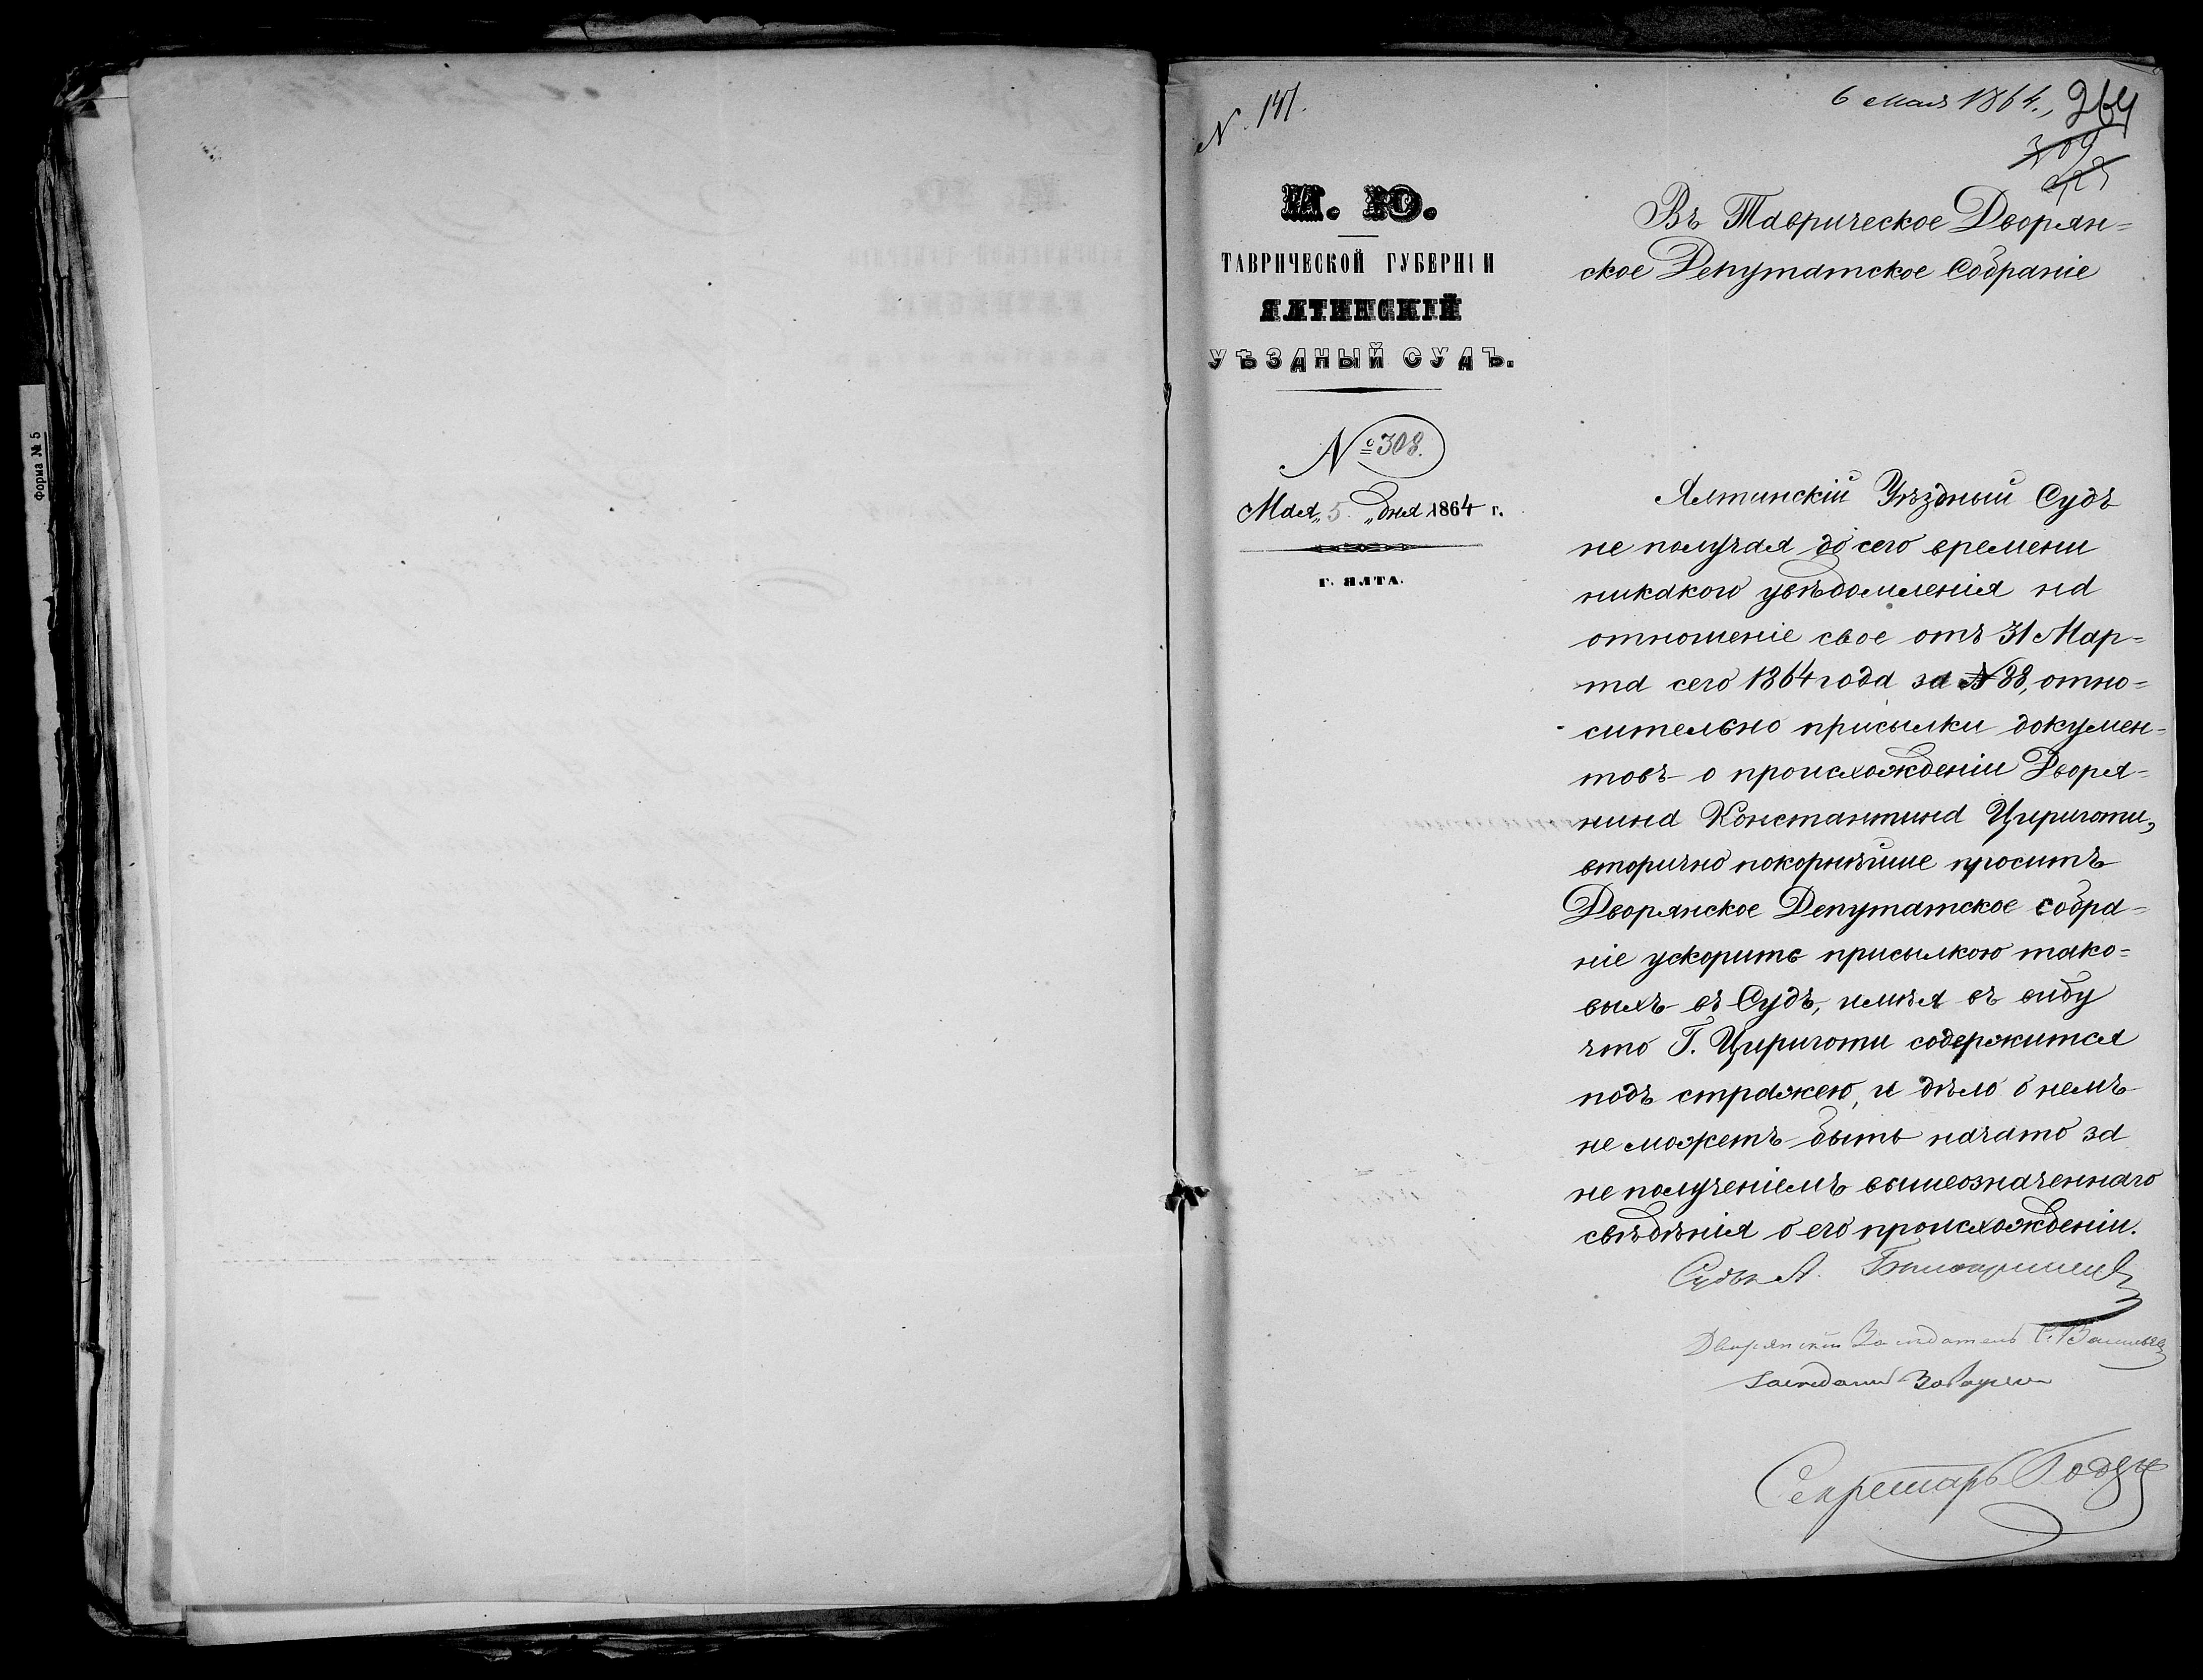 Форма № 5
N. 147.
6 Мая 1864.,
264
309
М. Ю.
ТАВРИЧЕСКОЙ ГУБЕРНІИ
ЯЛТИНСКІЙ
УѢЗДНЫЙ СУДЪ.
№ 308.
Мая „5 „ дня 1864 г.
Г. ЯЛТА.
Въ Таврическое Дворян=
ское Депутатское Собраніе
Ялтинскій Уѣздный Судъ
не получая до сего времени
никакого увѣдомленія на
отношеніе свое отъ 31 Мар=
та сего 1864 года за N 88, отно=
сительно присылки докумен=
товъ о происхожденіи Дворя=
нина Константина Цириготи,
вторично покорнѣйше проситъ
Дворянское Депутатское собра=
ніе ускорить присылкою тако=
выхъ въ Судъ, имѣя въ виду
что Г. Цириготи содержится
подъ стражею, и дѣло о немъ
не можетъ быть начато за
не полученіемъ вышеозначеннаго
свѣдѣнія о его происхожденіи.
Судья
Дворянскій Засѣдатель
Секретарь